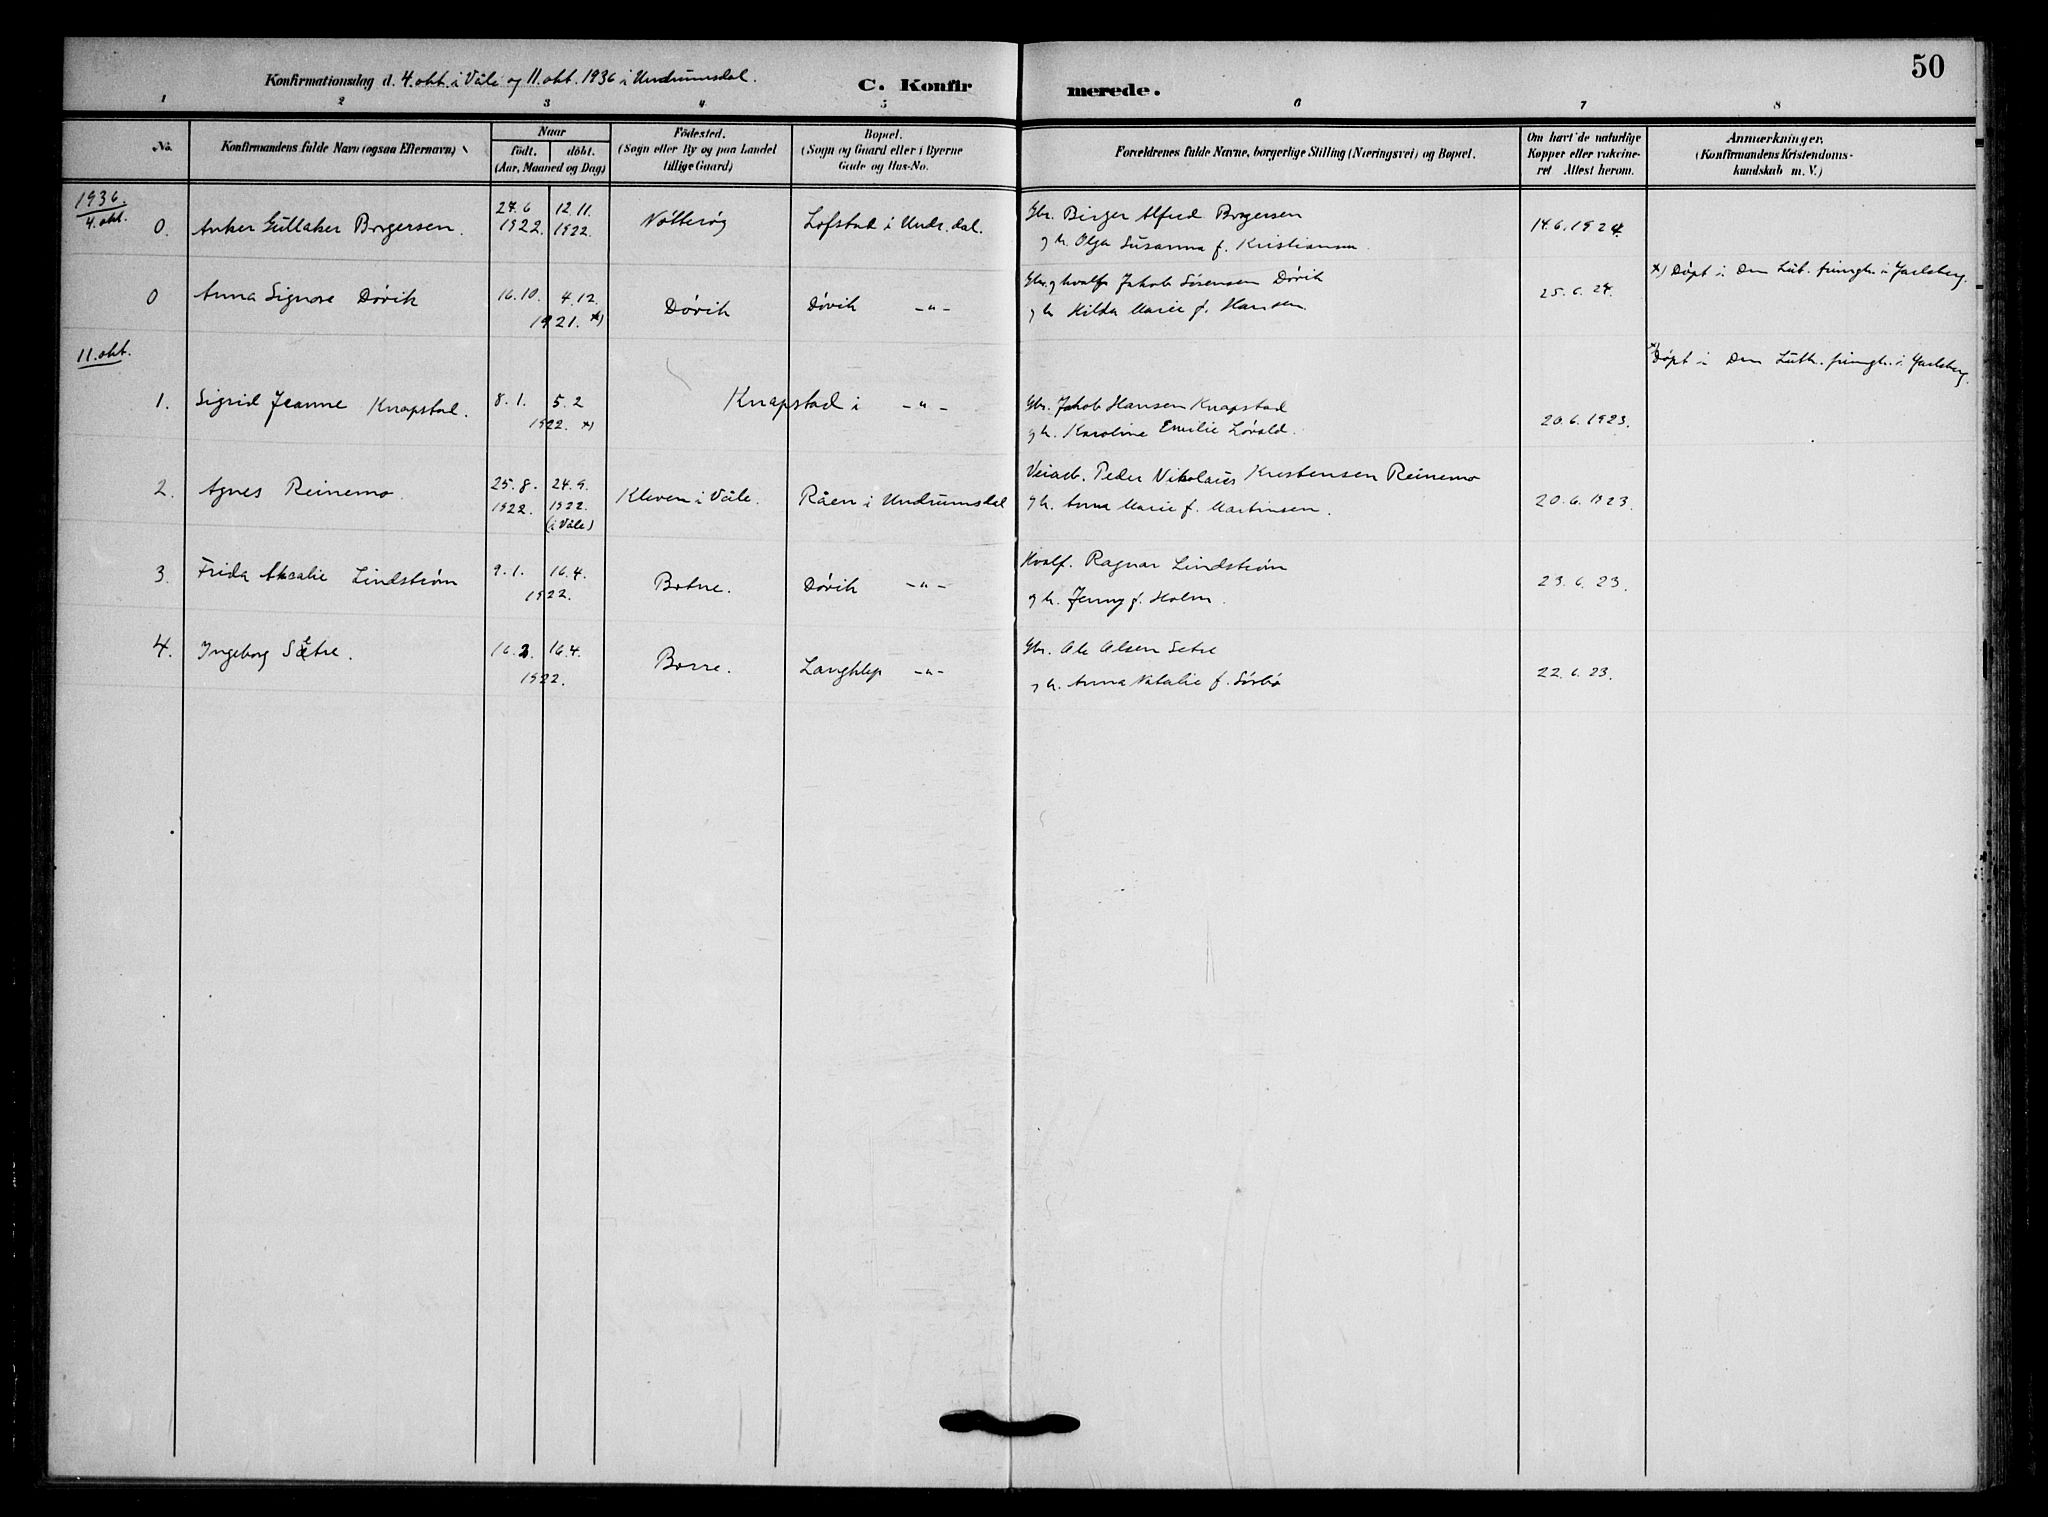 50
Konfirmationsdag d. 4. okt. i Våle og 11. okt. 1936 i Undrumsdal.
C. Konfirmerede.
1 2 3 4 5 6 7 8
No.
Konfirmandens fulde Navn (ogsaa Efternavn)
Naar
födt. döbt.
(Aar, Maaned og Dag)
Födested.
(Sogn eller By og paa Landet
tillige Gaard)
Bopæl.
(Sogn og Gaard eller i Byerne
Gade og Hus-No.
Forældrenes fulde Navne, borgerlige Stilling (Næringsvei) og Bopæl.
Om havt de naturlige
Kopper eller vakcine-
ret Attest herom.
Anmærkninger,
(Konfirmandens Kristendoms-
kundskab m. V.)
1936.
4. okt.
0. Anker Gullaker Borgersen. 27.6 1922. 12.11. 1922. Nøtterøy Lofstad i Undr.dal. Gbr. Birger Alfred Borgersen 14.6.1924.
og h. Olga Susanna f. Kristiansen
x) Døpt i Den Luth. frimgh. i Jarlsberg.
0 Anna Signore Døvik 16.10. 4.12. Døvik Døvik -"- Gbr. og hvalf. Jakob Sørensen Døvik 25.6.24.
1921. x) og h. Hilda Marie f. Hansen
11. okt.
x) Døpt i Den Luth. frimgh. i Jarlsberg.
1. Sigrid Jeanne Knapstad. 8.1. 5.2 Knapstad i -"- Gbr. Jakob Hansen Knapstad 20.6.1923.
1922. x) og h. Karoline Emilie Løvald.
2. Agnes Reinemo. 25.8. 1922. 24.9. 1922. (i Våle) Kleven i Våle. Råen i Undrumsdal Veiarb. Peder Nikolaius Kristensen Reinemo 20.6.1923.
og h. Anna Marie f. Martinsen.
3. Frida Lindstrøm 9.1. 16.4. Botne. Døvik -"- Hvalf. Ragnar Lindstrøm 23.6.23.
1922. og h. Jenny f. Holm.
4. Ingeborg Sætre. 16.2 16.4. Borre. Langklep -"- Gbr. Ole Olsen Setre 22.6.23.
1922. og h. Anna Natalie f. Sørbø